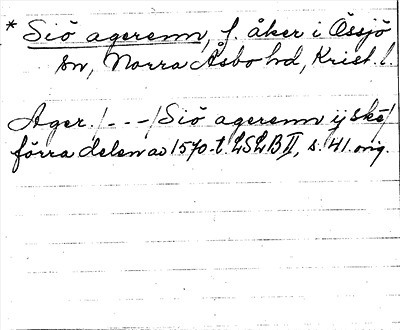 * Siö agerenn, f. åker i Össjö
sn, Norra Åsbo hd, Krist. l.
Ager. /---/ Siö agerenn ij skè/
förra delen av 1570-t. LSLB II, s. 41. orig.